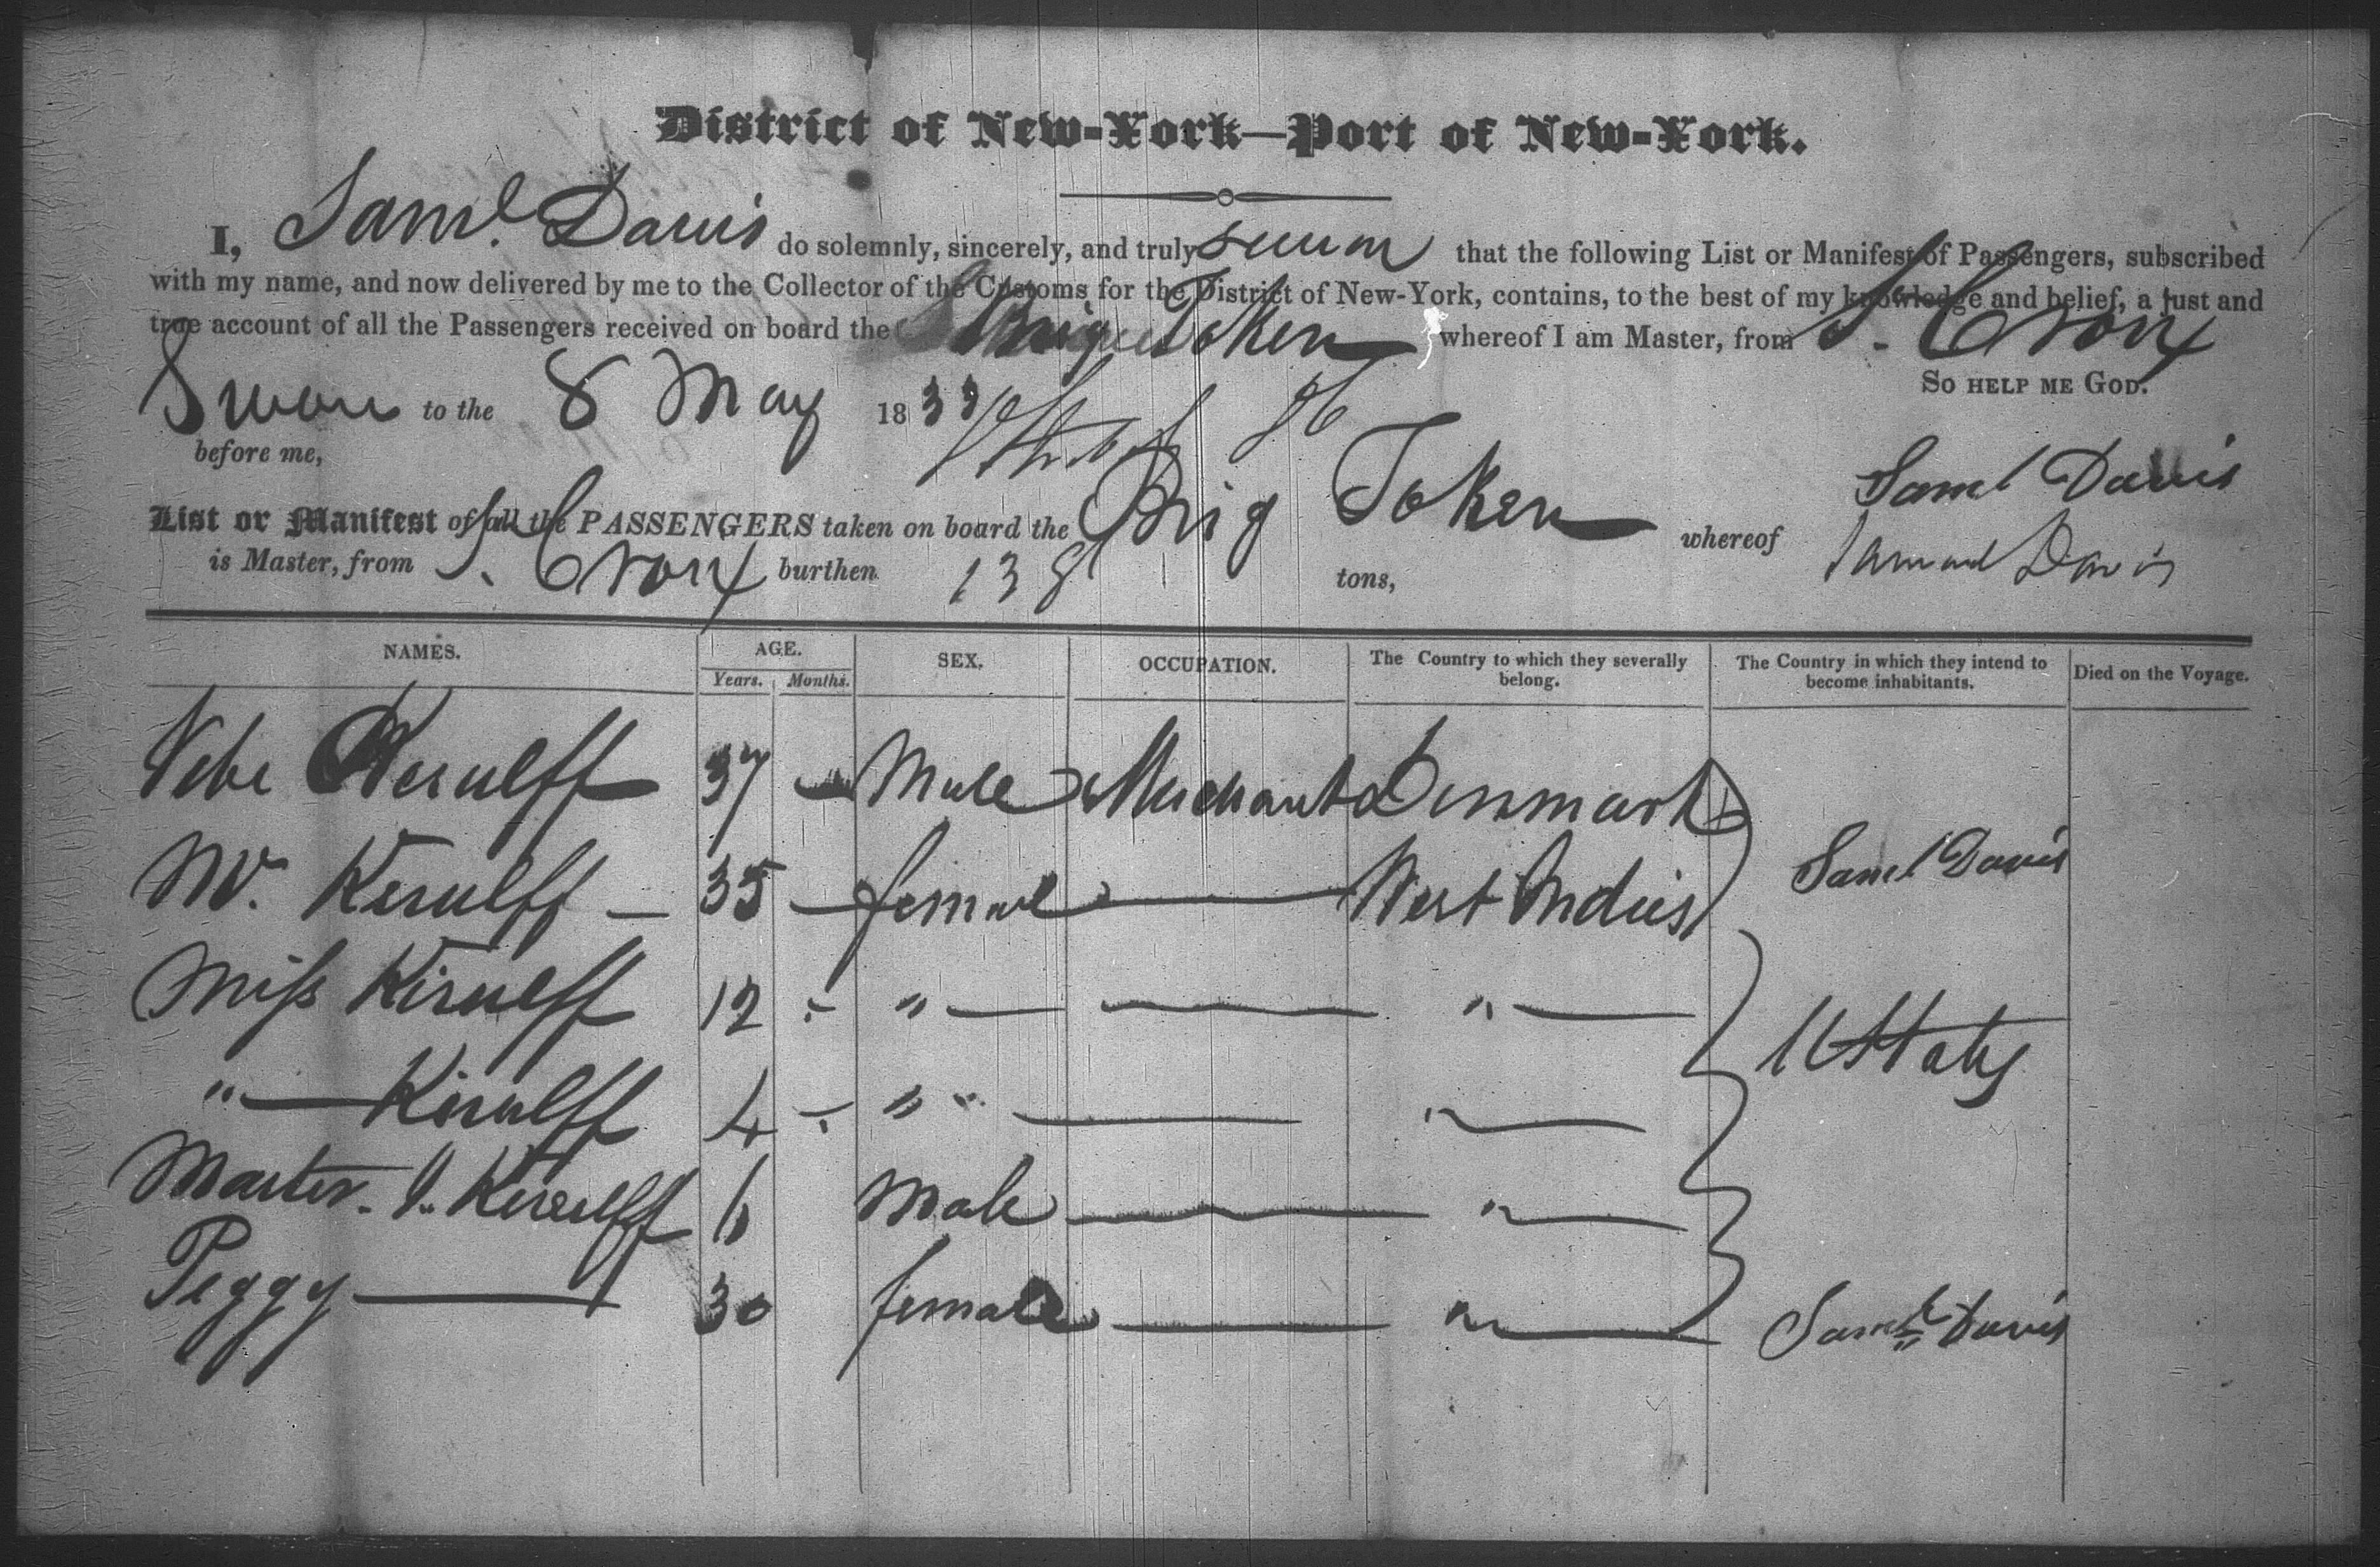 District of New-York—Port of New-York.
I, Saml. Davis do solemnly, sincerely, and truly swear that the following List or Manifest of Passengers, subscribed
with my name, and now delivered by me to the Collector of the Customs for the District of New-York, contains, to the best of my knowledge and belief, a just and
true account of all the Passengers received on board the Brig Token whereof I am Master, from S. Croix
So help me God.
Sworn to the 8 May 1833
before me,
Saml Davis
List or Manifest of all the PASSENGERS taken on board the Brig Token whereof Samuel Davis
is Master, from S. Croix burthen 138 tons,
NAMES. AGE. SEX. OCCUPATION. The Country to which they severally belong. The Country in which they intend to become inhabitants. Died on the Voyage.
Years. Months.
Kerulff 37 — Male Merchant Denmark
Kerulff — 35 — female — West Indies Saml Davis
Miss Kirulff 12 " — — " —
" — Kirulff 4 " " — " — U States
Master J. Kerulff 6 Male — " —
Peggy — 30 female — " — Saml Davis